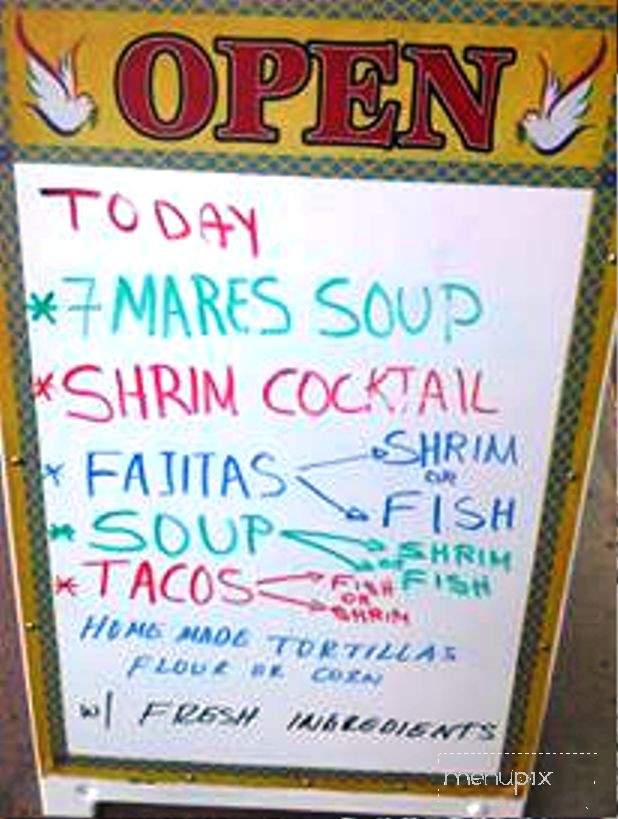 OPEN
TODAY
* 7 MARES SOUP
* SHRIM COCKTAIL
* FAJITAS SHRIM
OR
FISH
* SOUP SHRIM
OR FISH
* TACOS FISH
OR
SHRIM
HOME MADE TORTILLAS
FLOUR OR CORN
w/ FRESH INGREDIENTS
menupix